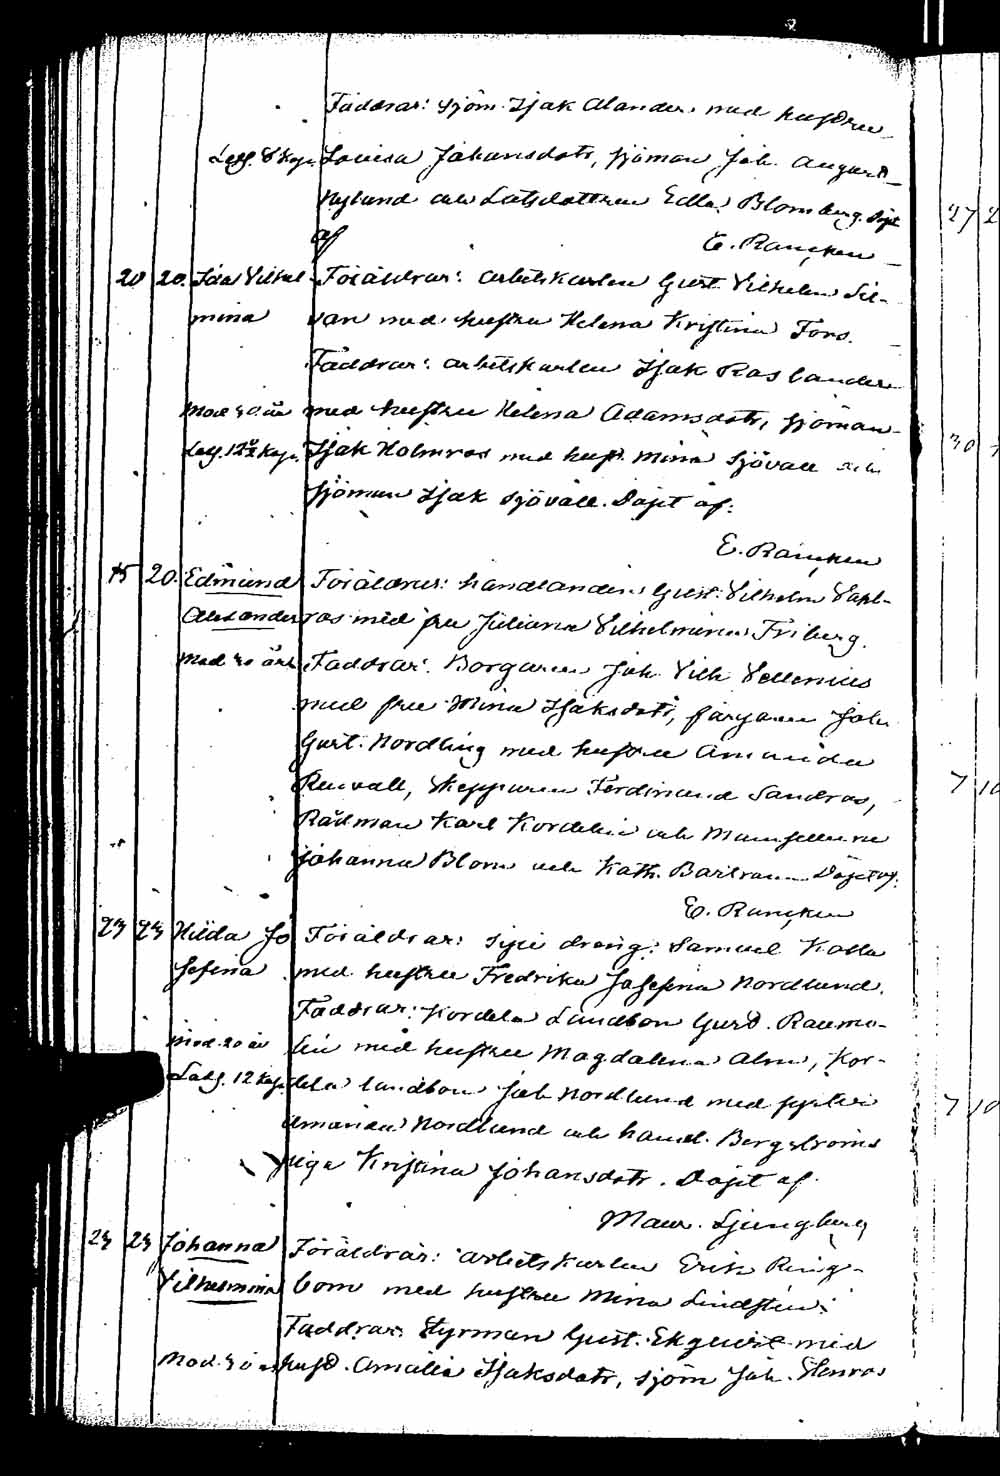 Faddrar: sjöm. Isak Alander med hustru
Legg. 8 kop. Lovisa Johansdotr, sjöman Joh. August
Nylund och Lotsdottren Edla Blomberg. Döpt
af E. Rancken
20 20. Ida Vilhel- Föräldrar: arbetskarlen Gust. Vilhelm Sil-
mina van med hustru Helena Kristina Fors.
Faddrar: arbetskarlen Isak Roslander
Mod. 30 år med hustru Helena Adamsdotr, sjöman
Legg. 12½ kop. Isak Holmros med hust. Mina Sjövall och
sjöman Isak Sjövall. Döpt af:
E. Rancken
15 20. Edmund Föräldrar: handlanden Gust. Vilhelm Vahl-
Alexander ros med fru Juliana Vilhelmina Friberg.
Mod. 30 år Faddrar: Borgaren Joh. Vilh. Vellenius
med fru Mina Isaksdotr, färgaren Joh.
Gust. Nordling med hustru Amanda
Renvall, Skepparen Ferdinand Sandros,
Rådman Karl Kordelin och Mamsellerna
Johanna Blom och Kath. Bartram. Döpt af.
E. Rancken
23 23 Hilda Jo- Föräldrar: dräng. Samuel Kolla
sefina med hustru Fredrika Josefina Nordlund.
Faddrar: Kordela Landbon Gust. Raumo-
Mod. 20 år lin med hustru Magdalena Alm, Kor-
Legg. 12 kop. dela landbon Jak Nordlund med syster
Amanda Nordlund och handl. Bergströms
piga Kristina Johansdotr. Döpt af
Maur. Ljungberg
23 23 Johanna Föräldrar: arbetskarlen Erik Ring-
Vilhelmina bom med hustru Mina Lindsten.
Faddrar: Styrman Gust. Ekqvist med
Mod. 30 år hust. Amalia Isaksdotr, sjöm Joh. Stenros
27 2
30
7 10
7 10